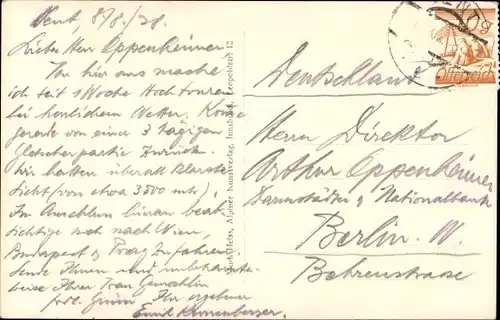 Vent, 8/8./28.
Lieber Herr Oppenheimer.
Von hier aus mache
ich seit 1 Woche Hochtouren
bei herrlichem Wetter. Komme
gerade von einer 3 tägigen
Gletscherpartie zurück.
Wir hatten überall klarste
Sicht (von etwa 3500 mtr).
Im Anschluss hieran beab-
sichtige noch nach Wien,
Budapest & Prag zu fahren.
Sende Ihnen und unbekannter-
weise Ihrer Frau Gemahlin
Ihr ergebener
Emil
Alpiner Kunstverlag, Innsbruck, Leopoldstr. 12
Österreich
Deutschland
Herrn Direktor
Arthur Oppenheimer
Darmstädter & Nationalbank
Berlin. W.
Behrenstrasse